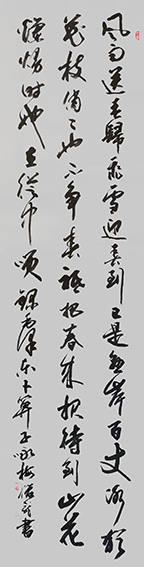 风雨送春归飞雪迎春到已是悬崖百丈冰犹
花枝俏〻也不争春祗把春来报待到山花
烂漫时她在丛中笑 錄泽东卜算子咏梅 書